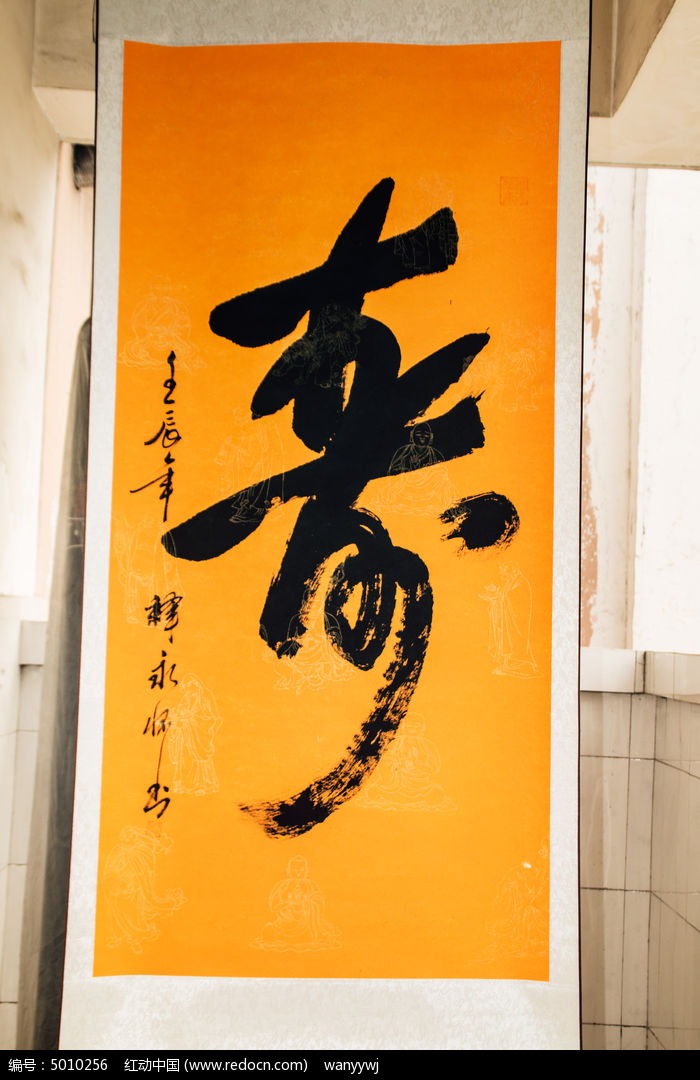 寿
壬辰年
释永怀书
编号：5010256 红动中国 (www.redocn.com) wanyywj